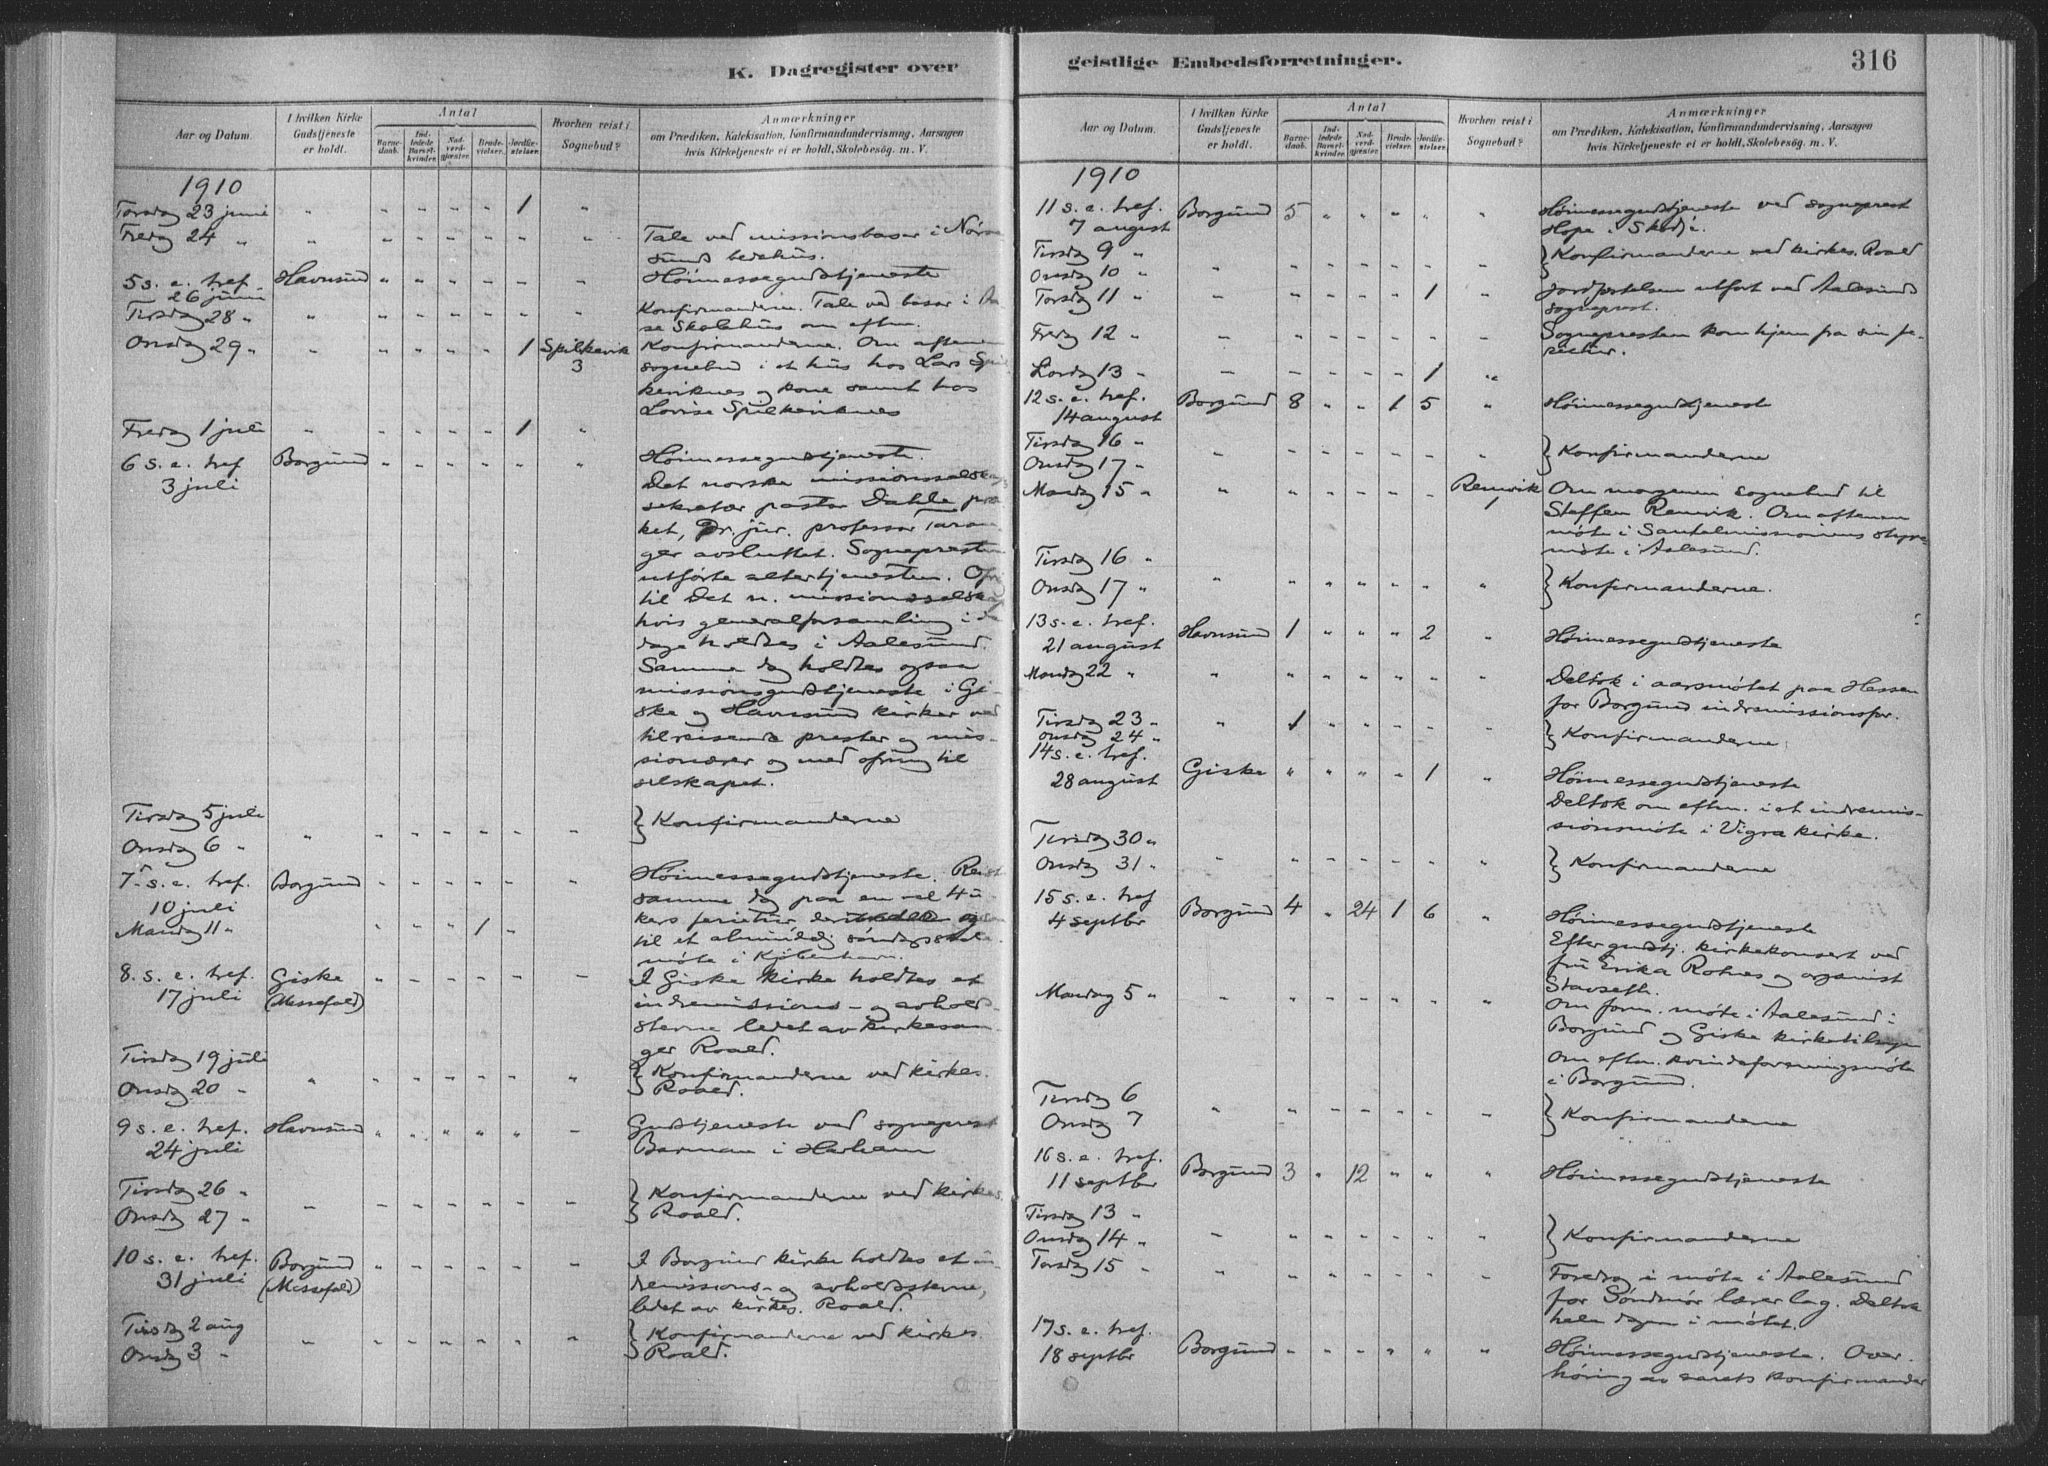 K. Dagregister over
Aar og Datum.
I hvilken Kirke Gudstjeneste er holdt.
Antal
Barne-daab.
Ind-ledede Barselkvinder.
Nad-verd-gjæster.
Brude-vielser.
Jordfæ-stelser.
Hvorhen reist i Sognebud?
Anmærkninger
om Prædiken, Katekisation, Konfirmandundervisning, Aarsagen
hvis Kirketjeneste ei er holdt, Skolebesög. m. V.
1910
Torsdag 23 juni " " " " " 1 "
Fredag 24 " " " " " " " " Tale ved missionsbasar i Nørve
sunds bedehus.
5 s. e. tref. Havnsund " " " " " " Høimessegudstjeneste
26 juni
Tirsdag 28 " " " " " " " " Konfirmanderne. Tale ved basar i
se Skolehus om eftm.
Onsdag 29 " " " " " " 1 Spilkevik Konfirmanderne. Om aftenen
3 sognebud i et hus hos Lars Spil
keviknes og kone samt hos
Lovise Spilkeviknes
Fredag 1 juli " " " " " 1 "
6 s. e. tref Borgund " " " " " " Høimessegudstjeneste.
3 juli Det norske missionsselskaps
sekretær pastor Dahle præ
ket, Dr. jur. professor Taran
ger avsluttet. Sognepresten
utførte altertjenesten. Ofring
til Det n. missionsselskap
hvis generalforsamling i de
dage holdtes i Aalesund.
Samme dag holdtes ogsaa
missionsgudstjeneste i Gi-
ske og Havnsund kirker ved
tilreisende prester og mis-
sionærer og med ofring til
selskapet.
Tirsdag 5 juli } Konfirmanderne
Onsdag 6 " " " " " " " "
7. s. e. tref. Borgund " " " " " " Høimessegudstjeneste. Reist
10 juli samme dag paa en vel 4 u-
kers ferietur
Mandag 11 " " " " 1 " til et almindelig søndagsskole
møte i Kjøbenhavn.
8. s. e. tref. Giske " " " " " " I Giske kirke holdtes et
17 juli (Messefald) indremissions- og avhold
stevne ledet av kirkesan-
ger Roald.
Tirsdag 19 juli } Konfirmanderne ved kirkes.
Onsdag 20 " " " " " " " " Roald.
9 s. e. tref. Havnsund " " " " " " Gudstjeneste ved sogneprest
24 juli Barman i Harham
Tirsdag 26 " } Konfirmanderne ved kirkes.
Onsdag 27 " " " " " " " " Roald.
10 s. e. tref. Borgund " " " " " " I Borgund kirke holdtes et in
31 juli (Messefald) dremissions- og avholdsstevne,
ledet av kirkes. Roald.
Tirsdag 2 aug } Konfirmanderne ved kirkes.
Onsdag 3 " " " " " " " " Roald.
geistlige Embedsforretninger. 316
Aar og Datum.
I hvilken Kirke Gudstjeneste er holdt.
Antal
Barne-daab.
Ind-ledede Barselkvinder.
Nad-verd-gjæster.
Brude-vielser.
Jordfæ-stelser.
Hvorhen reist i Sognebud?
Anmærkninger
om Prædiken, Katekisation, Konfirmandundervisning, Aarsagen
hvis Kirketjeneste ei er holdt, Skolebesög. m. V.
1910
11 s. e. tref. Borgund 5 " " " " " Høimessegudstjeneste ved sogneprest
7 august Hope i Skodje.
Tirsdag 9 " } Konfirmanderne ved kirkes. Roald
Onsdag 10 " " " " " " " "
Torsdag 11 " " " " " " 1 " Jordfæstelsen utført ved Aalesunds
sogneprest.
Fredag 12 " " " " " " " " Sognepresten kom hjem fra sin fe-
rietur.
Lørdag 13 " " " " " " 1 "
12 s. e. tref. Borgund 8 " " 1 5 " Høimessegudstjeneste
14 august
Tirsdag 16 " } Konfirmanderne
Onsdag 17 " " " " " " " "
Mandag 15 " " " " " " " Remvik Om morgenen sognebud til
1 Steffen Remvik. Om aftenen
møte i Santalmissionens styre-
møte i Aalesund.
Tirsdag 16 "
Onsdag 17 " " " " " " " " } Konfirmanderne.
13 s. e. tref. Havnsund 1 " " " 2 " Høimessegudstjeneste
21 august
Mandag 22 " " " " " " " " Deltok i aarsmøtet paa Hessen
for Borgund indremissionsfor.
Tirsdag 23 " " 1 " " " " " } Konfirmanderne
Onsdag 24 "
14 s. e. tref. Giske " " " " 1 " Høimessegudstjeneste
28 august Deltok om eftm. i et indremis-
sionsmøte i Vigra kirke.
Tirsdag 30 "
Onsdag 31 " " " " " " " " } Konfirmanderne
15 s. e. tref Borgund 4 " 24 1 6 " Høimessegudstjeneste
4 septbr Efter gudstj. kirkekonsert ved
fru Erika Rotnes og organist
Stavseth.
Mandag 5 " " " " " " " " Om form. møte i Aalesund i
Borgund og Giske kirketilsyn
Om eftm. kvindeforeningsmøte
i Borgund.
Tirsdag 6
Onsdag 7 " " " " " " " } Konfirmanderne
16 s. e. tref. Borgund 3 " 12 " " " Høimessegudstjeneste
11 septbr
Tirsdag 13 "
Onsdag 14 " " " " " " " " } Konfirmanderne
Torsdag 15 " " " " " " " Foredrag i møte i Aalesund
for Søndmør lærerlag. Deltok
hele dagen i møtet.
17 s. e. tref.
18 septbr Borgund " " " " " " Høimessegudstjeneste. Over-
høring av aarets konfirmander